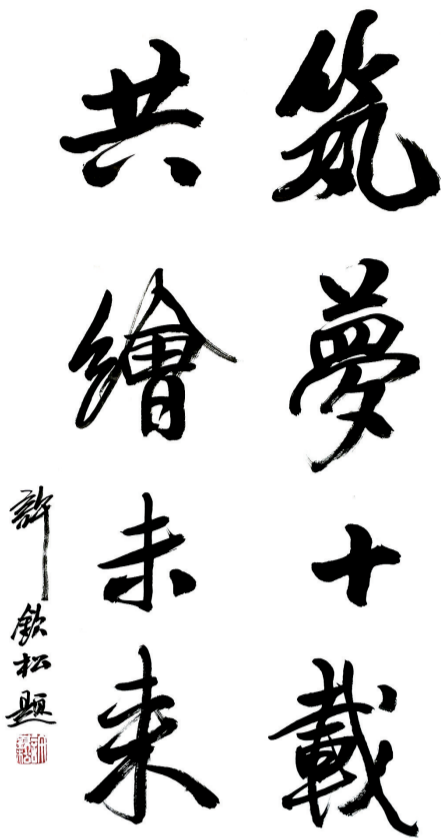 筑夢十載
共繪未来
許欽松題